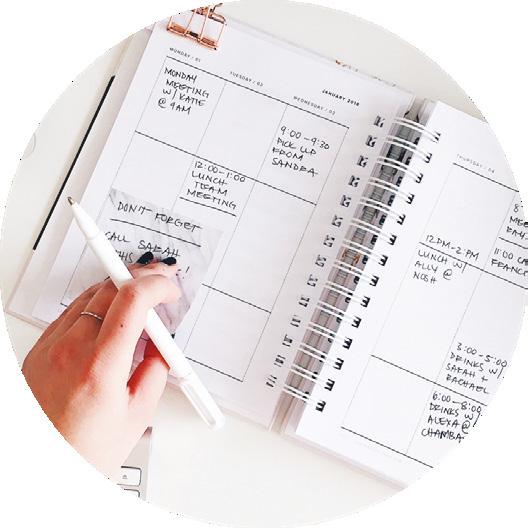 MONDAY / 01
MONDAY
MEETING
W/ KATIE
@ 9AM
TUESDAY / 02
12:00-1:00
LUNCH
TEAM
MEETING
JANUARY 2018
WEDNESDAY / 03
9:00-9:30
PICK UP
FROM
SANDRA
DON'T FORGET
CALL SARAH
THIS
!
THURSDAY / 04
12PM-2PM
LUNCH W/
ALLY @
NOSH
8-
11:00
FRANC
3:00-5:00
DRINKS W/
SARAH +
RACHAEL
6:00-8:00
DRINKS W/
ALEXA @
CHAMBA